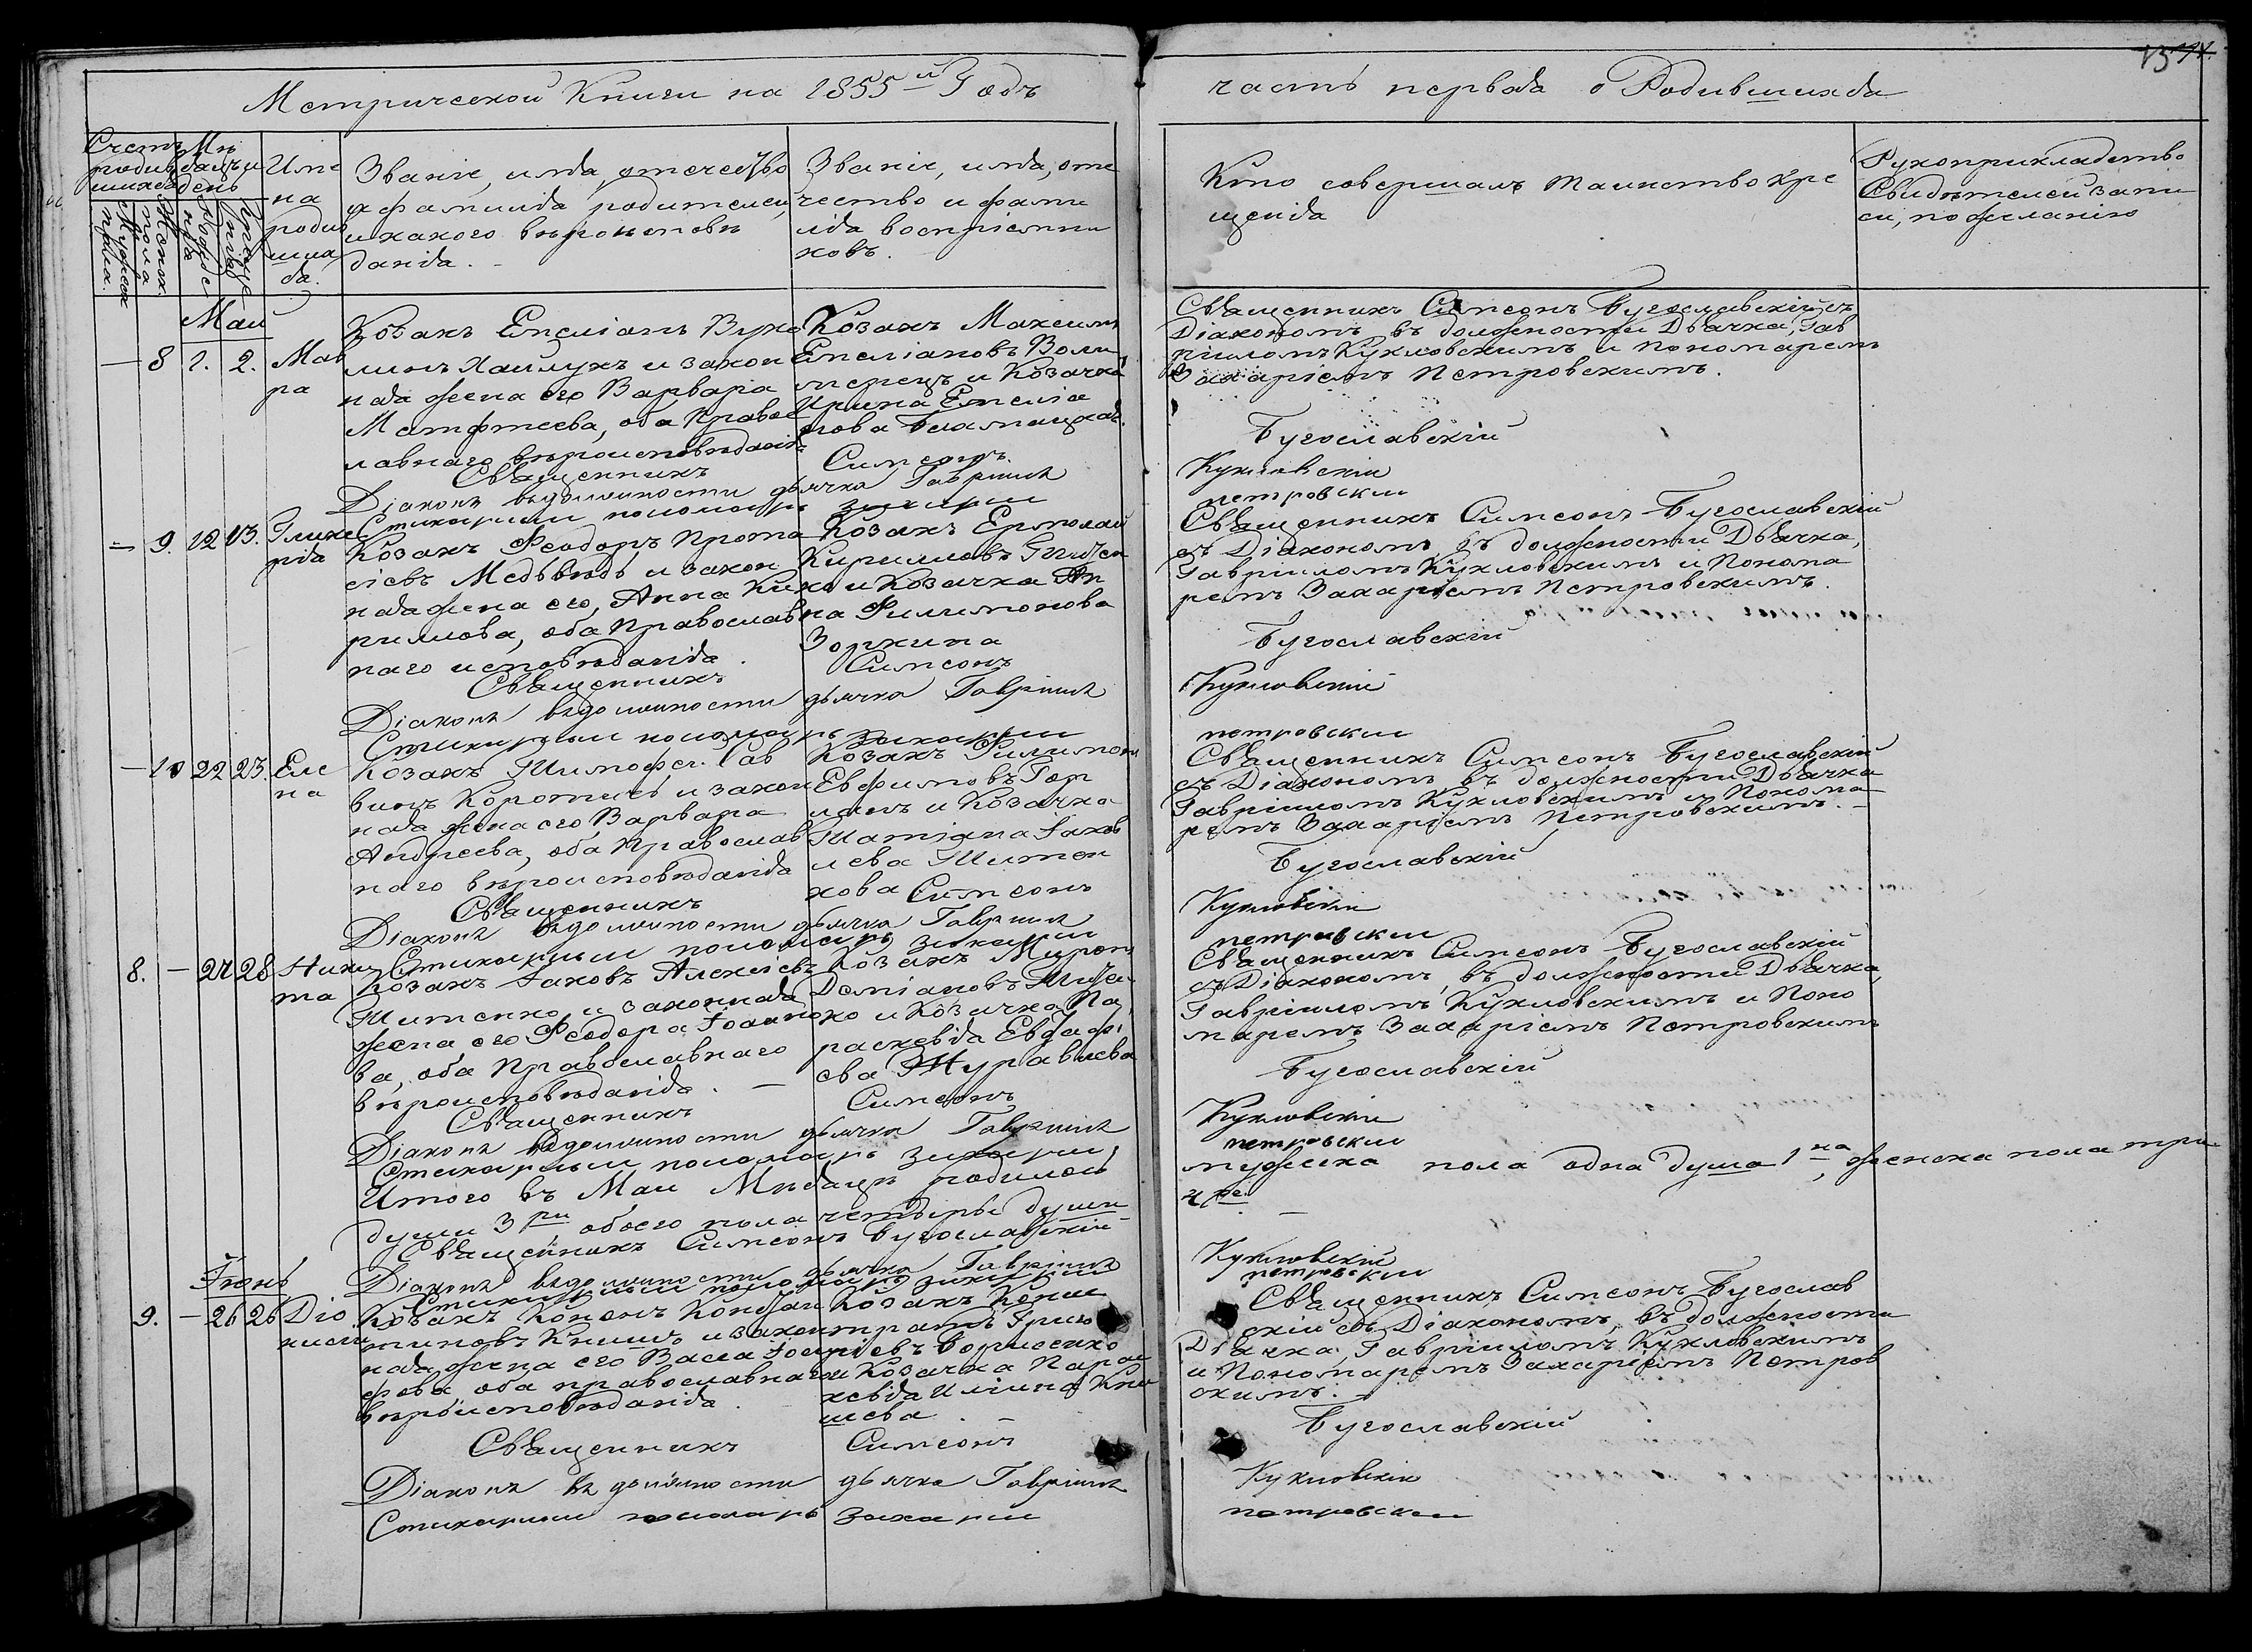 Метрической Книги на 1855й Годъ
часть первая о Родившихся
Счетъ родив шихся
Мѣ сяцъ и день
Име на родив шихъ ся.
Званіе, имя, отечество
и фамилія родителей,
и какого вѣроисповѣ
данія. -
Званіе, имя, оте
чество и фами
лія воспріемни
ковъ.
Кто совершалъ таинство кре
щенія
Рукоприкладство
Свидѣтелей запи
си, по желанію
Май
— 8 1. 2. Мав
ра
Козакъ Емеліанъ
линъ Хайлукъ и закон
ная жена его Варвара
Матфеева, оба Правос
лавнаго вѣроисповѣданія
Козакъ Максимъ
Емеліановъ
и Козачка
Ирина Емеліа
нова
Священникъ Симеонъ Бугославскій съ
Діакономъ въ должности Дьячка, Гав
риломъ Кукловскимъ и пономаремъ
Захаріемъ Петровскимъ.
Священникъ Симеонъ Бугославскій
Діаконъ въ должности дьячка Гавріилъ Кукловскій
Стихарный пономарь Захарій петровский
— 9. 12 13. Глике
рія
Козакъ Феодоръ Прота
сіевъ Медвѣдь и закон
ная жена его, Анна Ки
рилова, оба Православ
наго исповѣданія.
Козакъ Ермолай
Кириловъ
ко и Козачка Ан
на Филимонова
Зоркина
Священникъ Симеонъ Бугославскій
съ Діакономъ, въ должности Дьячка,
Гавріиломъ Кукловскимъ и Понома
ремъ Захаріемъ Петровскимъ.
Священникъ Симеонъ Бугославскій
Діаконъ въ должности дьячка Гавріилъ Кукловскій
Стихарный пономарь Захарій петровский
— 10 22 23. Еле
на
Козакъ Тимофей Сав
винъ Коротичъ и закон
ная жена его, Варвара
Андреева, оба Православ
наго вѣроисповѣданія
Козакъ Филимонъ
Евфимовъ Гор
и Козачка
Татіана Іаков
лева Титен
кова
Священникъ Симеонъ Бугославскій
съ Діакономъ въ должности Дьячка
Гавріиломъ Кукловскимъ и Понома
ремъ Захаріемъ Петровскимъ. -
Священникъ Симеонъ Бугославскій
Діаконъ въ должности дьячка Гавріилъ Кукловскій
Стихарный пономарь Захарій петровский
8. — 27 28 Ники
та
Козакъ Іаковъ Алексіевъ
Титенко и законная
жена его Феодора Іоанно
ва, оба Православнаго
вѣроисповѣданія. —
Козакъ Миронъ
Даміановъ
ко и Козачка Па
раскевія Евдафі
ева Журавлева
Священникъ Симеонъ Бугославскій
съ Діакономъ, въ должности Дьячка,
Гавріиломъ Кукловскимъ и Поно
маремъ Захаріемъ Петровскимъ
Священникъ Симеонъ Бугославскій
Діаконъ въ должности дьячка Гавріилъ Кукловскій
Стихарный пономарь Захарій петровский
Итого въ Маи Мѣсяцѣ родилось мужеска пола одна душа 1на, женска пола три
души 3ри обоего пола четырѣ души 4ре. —
Священникъ Симеонъ Бугославскій
Діаконъ въ должности дьячка Гавріилъ Кукловскій
Стихарный пономарь Захарій петровский
Іюнь
9. — 26 26 Діо
нисий
Козакъ Кононъ Констан
тиновъ Книшъ и закон
ная жена его Васса Іоси
фова, оба православнаго
вѣроисповѣданія.
Козакъ
Григо
ріевъ Борисенко
и Козачка Парас
кевія Иліина Кни
шева. —
Священникъ Симеонъ Бугослав
скій съ Діакономъ, въ должности
Дьячка, Гавріиломъ Кукловскимъ
и Пономаремъ Захаріемъ Петров
скимъ. —
Священникъ Симеонъ Бугославскій
Діаконъ въ должности дьячка Гавріилъ Кукловскій
Стихарный пономарь Захарій петровский